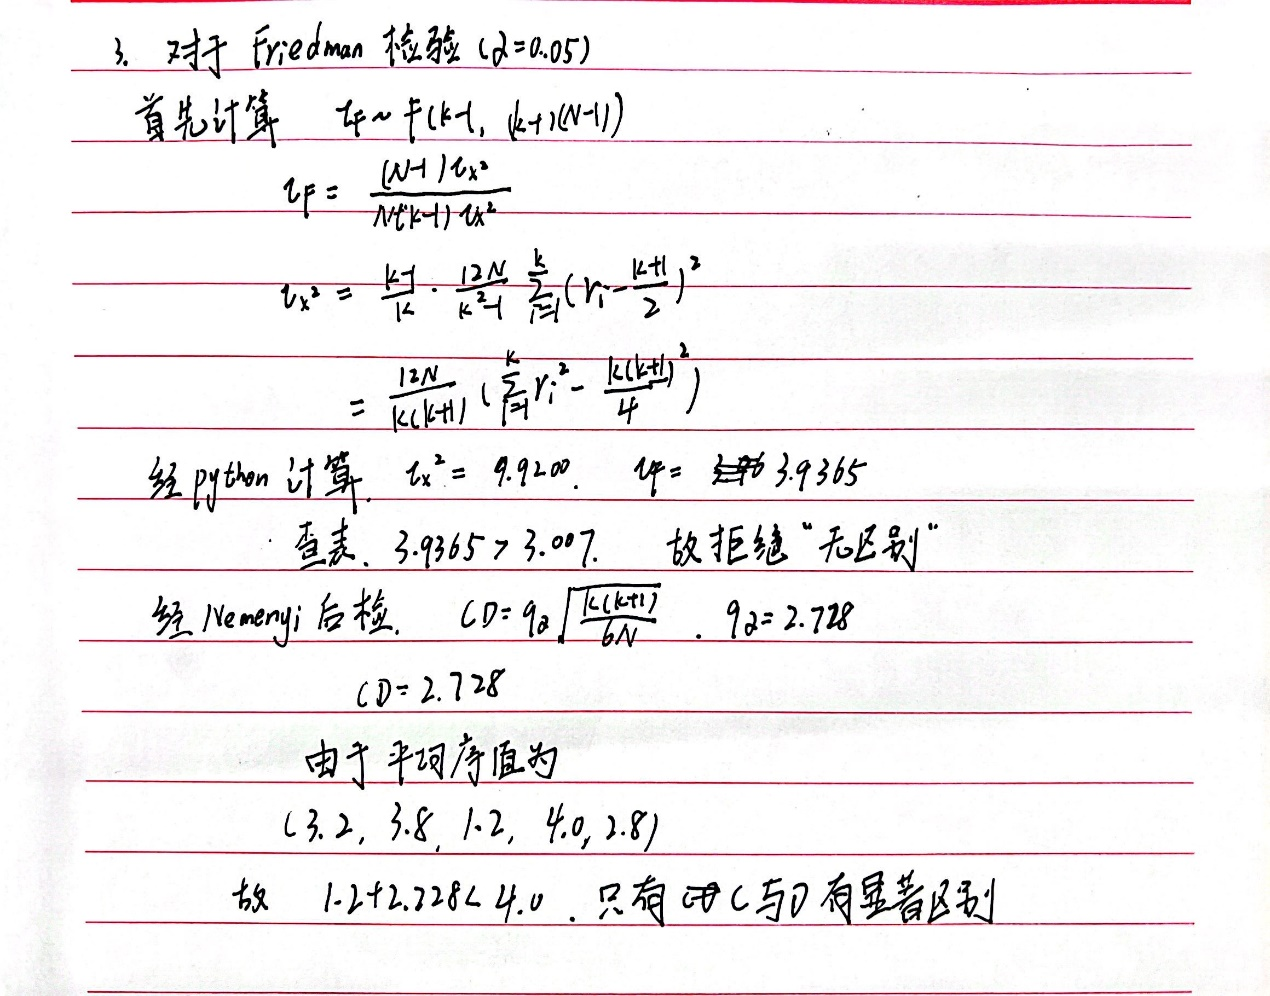 3. 对于 Friedman 检验 (α=0.05)
首先计算 τF ~ F(k-1, (k-1)(N-1))
τF = (N-1)τx² / N(k-1) τx²
τx² = k-1/k · 12N/k²-1 ∑i=1^k (ri - k+1/2)²
= 12N/k(k+1) (∑i=1^k ri² - k(k+1)²/4)
经 python 计算. τx² = 9.9200. τF = 3.9365
查表. 3.9365 > 3.007. 故拒绝 "无区别"
经 Nemenyi 后检. CD = qα √k(k+1)/6N . qα = 2.728
CD = 2.728
由于平均序值为
(3.2, 3.8, 1.2, 4.0, 2.8)
故 1.2+2.728 < 4.0 . 只有 C 与 D 有显著区别